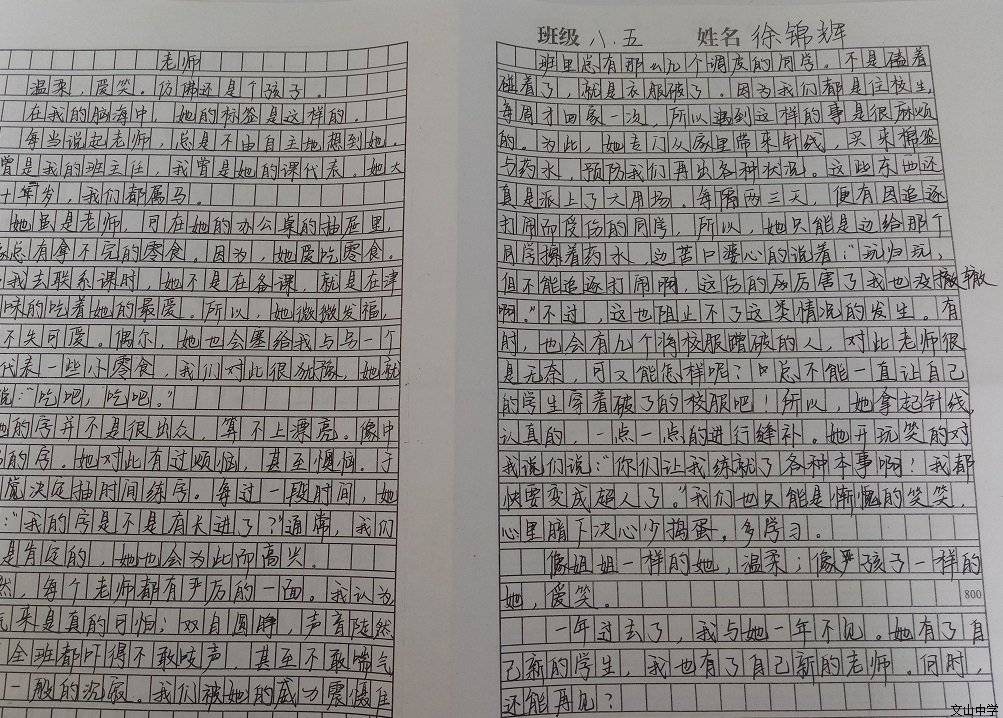 老师
温柔，爱笑。仿佛还是个孩子。
在我的脑海中，她的标签是这样的。
每当说起老师，总是不由自主地想到她。
曾是我的班主任，我曾是她的课代表。她大
十二岁，我们都属马。
她虽是老师，可在她的办公桌的抽屉里，
总有拿不完的零食。因为，她爱吃零食。
我去联系课时，她不是在备课，就是在津
味的吃着她的最爱。所以，她微微发福，
不失可爱。偶尔，她也会塞给我与另一个
代表一些小零食，我们对此很犹豫，她就
说：“吃吧，吃吧。”
她的字并不是很出众，算不上漂亮。像中
的字。她对此有过烦恼，甚至懊恼。于
是决定抽时间练字。每过一段时间，她
：“我的字是不是有长进了？”通常，我们
是肯定的，她也会为此而高兴。
然，每个老师都有严厉的一面。我认为
气来是真的可怕；双目圆睁，声音陡然
全班都吓得不敢吱声，甚至不敢喘气
一般的沉寂。我们被她的威力震慑住
班级 八.五 姓名 徐锦辉
班里总有那么几个调皮的同学。不是磕着
碰着了，就是衣服破了。因为我们都是住校生，
每周才回家一次，所以遇到这样的事是很麻烦
的。为此，她专门从家里带来针线，买来棉签
与药水，预防我们再出各种状况。这些东西还
真是派上了大用场。每隔两三天，便有因追逐
打闹而受伤的同学，所以，她只能是边给那个
同学擦着药水，边苦口婆心的说着：“玩归玩，
但不能追逐打闹啊，这伤的厉害了我也没辙
啊。”不过，这也阻止不了这类情况的发生。有
时，也会有几个将校服蹭破的人，对此老师很
是无奈，可又能怎样呢？总不能一直让自己
的学生穿着破了的校服吧！所以，她拿起针线，
认真的，一点一点的进行缝补。她开玩笑的对
我说们说：“你们让我练就了各种本事啊！我都
快要变成超人了。”我们也只能是惭愧的笑笑，
心里暗下决心少捣蛋。多学习。
像姐姐一样的她，温柔；像孩子一样的
她，爱笑。
800
一年过去了，我与她一年不见。她有了自
己新的学生，我也有了自己新的老师。何时，
还能再见？
文山中学